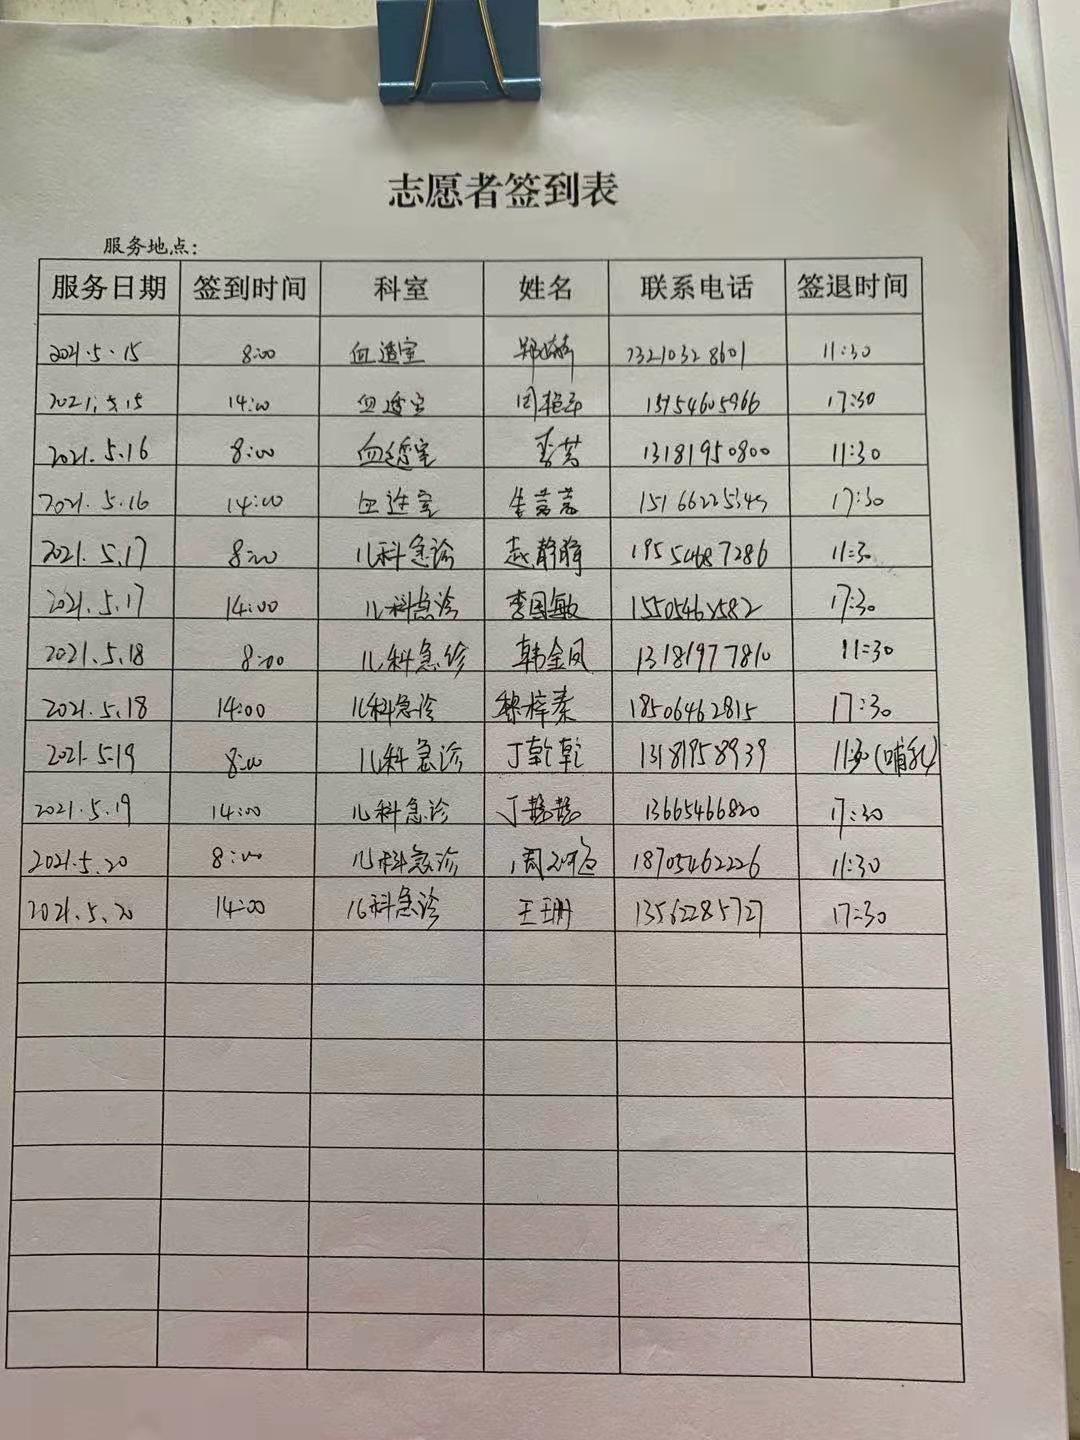 志愿者签到表
服务地点：
服务日期 签到时间 科室 姓名 联系电话 签退时间
2021.5.15 8:00 血透室 11:30
2021.5.15 14:00 血透室 17:30
2021.5.16 8:00 血透室 李芳 13181950800 11:30
2021.5.16 14:00 血透室 17:30
2021.5.17 8:00 儿科急诊 赵静静 19554687286 11:30
2021.5.17 14:00 儿科急诊 李国敏 17:30
2021.5.18 8:00 儿科急诊 韩金凤 13181977810 11:30
2021.5.18 14:00 儿科急诊 穆梓秦 18506462815 17:30
2021.5.19 8:00 儿科急诊 丁乾乾 13181958939 11:30(哺乳)
2021.5.19 14:00 儿科急诊 13665466820 17:30
2021.5.20 8:00 儿科急诊 18705462226 11:30
2021.5.20 14:00 儿科急诊 王珊 13562285727 17:30